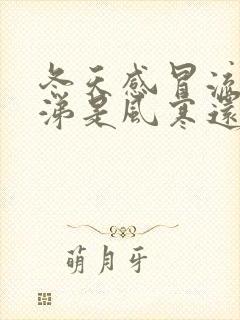 冬天感冒流
涕是风寒还
萌月牙